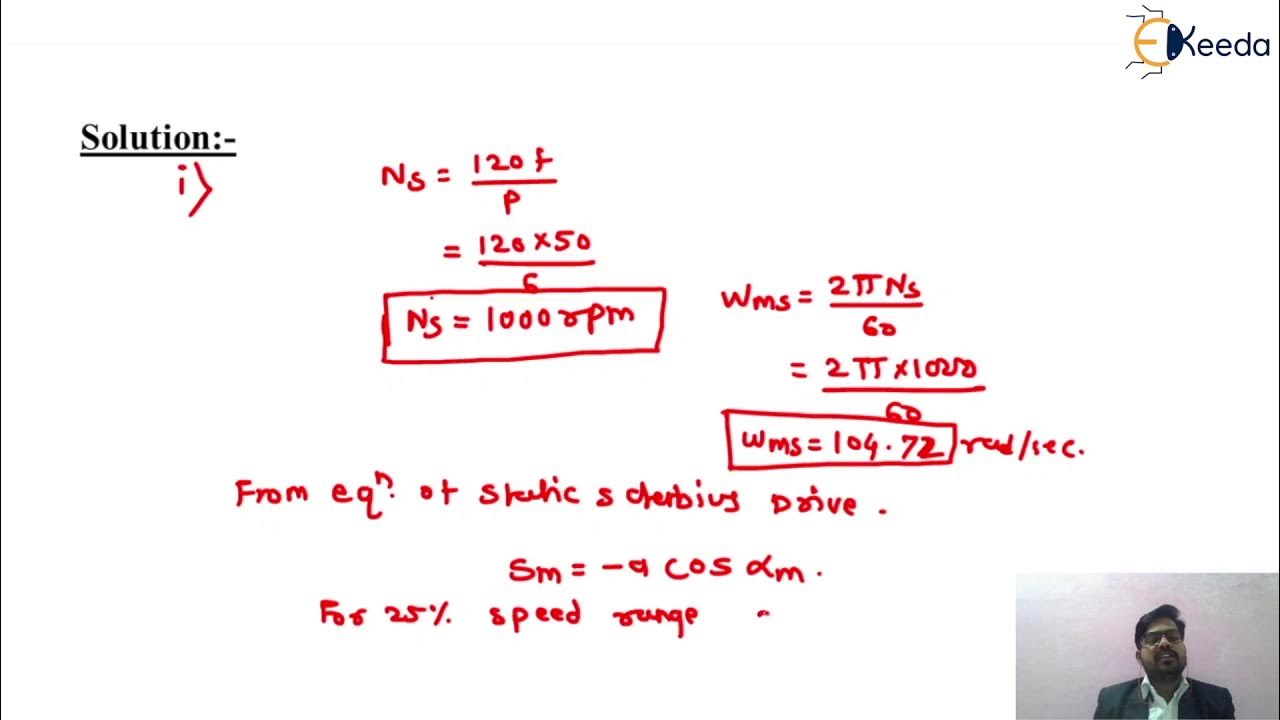 EKeeda
Solution:-
i)
Ns = 120 f
P
= 120 × 50
6
Ns = 1000 rpm
Wms = 2π Ns
60
= 2π × 1000
60
Wms = 104.72 rad/sec.
From eqn. of static scherbius Drive.
Sm = -a cos αm.
For 25% speed range